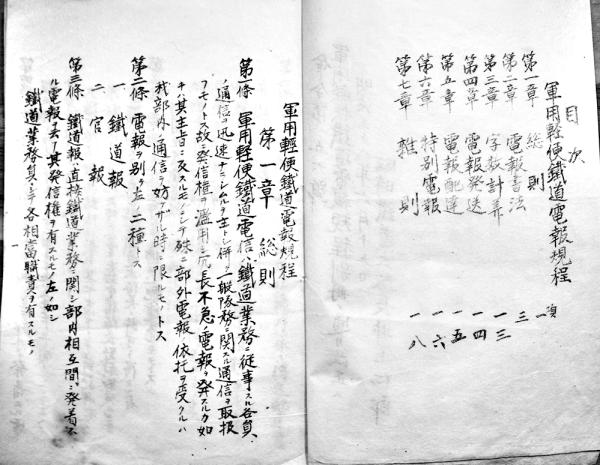 目次
軍用輕便鐵道電報規程 頁
第一章 総則 一
第二章 電報書法 三
第三章 字数計算 一三
第四章 電報発送 一四
第五章 電報配達 一五
第六章 特別電報 一六
第七章 雑則 一八
軍用輕便鐵道電報規程
第一章 総則
第一條 軍用輕便鐵道電信ハ鐵道業務ニ従事スル各員
ノ通信ヲ迅速ナラシムルヲ主トシ併テ一般隊務ニ関スル通信ヲ取扱
フモノトス故ニ発信権ヲ濫用シ冗長不急ノ電報ヲ発スルカ如
キハ其主旨ニ反スルモノトシ殊ニ部外電報ノ依托ヲ受クルハ
我部内ノ通信ヲ妨ケザル時ニ限ルモノトス
第二條 電報ヲ別テ左ノ二種トス
一 鐵道報
二 官報
第三條 鐵道報ハ直接鐵道業務ニ関シ部内相互間ニ発着ス
ル電報ニシテ其発信権ヲ有スルモノ左ノ如シ
鐵道業務員ニシテ各相當職責ヲ有スルモノ
一